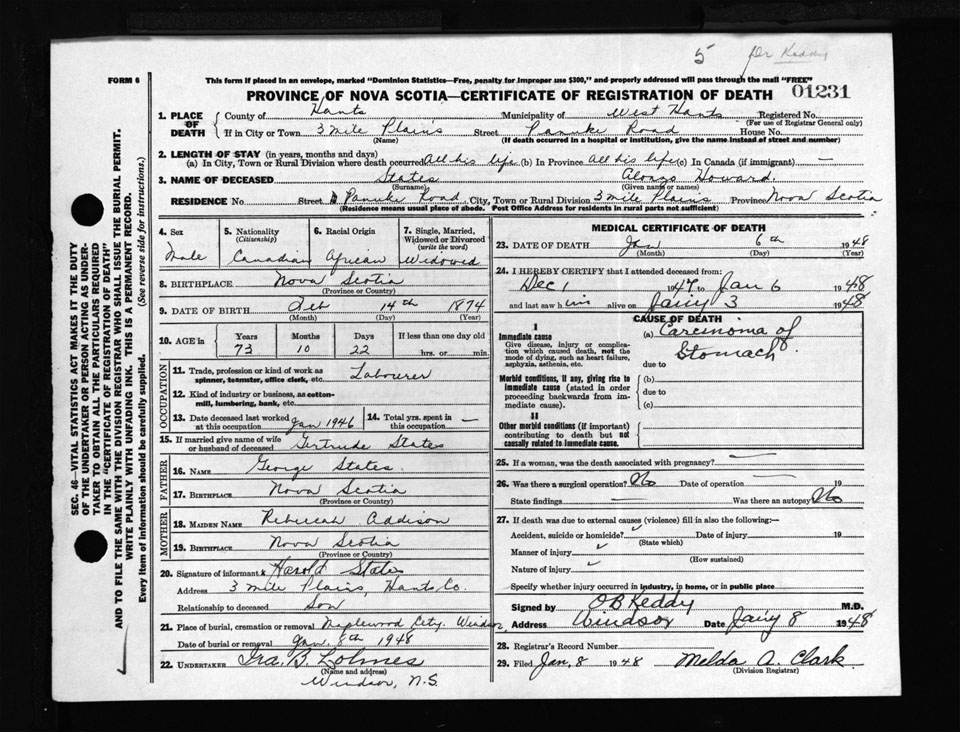 5 Dr Keddy
FORM 6
This form if placed in an envelope, marked "Dominion Statistics—Free, penalty for improper use $300," and properly addressed will pass through the mail "FREE"
PROVINCE OF NOVA SCOTIA—CERTIFICATE OF REGISTRATION OF DEATH 01231
1. PLACE OF DEATH { County of Hants Municipality of West Hants Registered No.
(For use of Registrar General only)
If in City or Town 3 mile Plains Street Panuke Road House No.
(Name) (If death occurred in a hospital or institution, give the name instead of street and number)
2. LENGTH OF STAY (in years, months and days)
(a) In City, Town or Rural Division where death occurred All his life (b) In Province All his life (c) In Canada (if immigrant) —
3. NAME OF DECEASED States Alonzo Howard.
(Surname) (Given name or names)
RESIDENCE No. Street Panuke Road, City, Town or Rural Division 3 mile Plains Province Nova Scotia
(Residence means usual place of abode. Post Office Address for residents in rural parts not sufficient)
4. Sex
Male
5. Nationality
(Citizenship)
Canadian
6. Racial Origin
African
7. Single, Married, Widowed or Divorced
(write the word)
Widowed
8. BIRTHPLACE Nova Scotia
(Province or Country)
9. DATE OF BIRTH 14th 1874
(Month) (Day) (Year)
10. AGE in Years Months Days If less than one day old
73 10 22 hrs. or min.
OCCUPATION
11. Trade, profession or kind of work as Labourer
spinner, teamster, office clerk, etc.
12. Kind of industry or business, as cotton-
mill, lumbering, bank, etc.
13. Date deceased last worked at this occupation Jan 1946
14. Total yrs. spent in this occupation —
15. If married give name of wife or husband of deceased Gertrude States
FATHER
16. NAME George States.
17. BIRTHPLACE Nova Scotia
(Province or Country)
MOTHER
18. MAIDEN NAME Rebeccah Addison
19. BIRTHPLACE Nova Scotia
(Province or Country)
20. Signature of informant x Harold States
Address 3 mile Plains, Hants Co.
Relationship to deceased Son
21. Place of burial, cremation or removal Maplewood Windsor
Date of burial or removal Jan. 8th 1948
22. UNDERTAKER Ira. B. Lohnes
(Name and address)
Windsor, N.S.
MEDICAL CERTIFICATE OF DEATH
23. DATE OF DEATH Jan 6th 1948
(Month) (Day) (Year)
24. I HEREBY CERTIFY that I attended deceased from:
Dec 1 1947 Jan 6 1948
and last saw him alive on Jan'y 3 1948
CAUSE OF DEATH
I
Immediate cause
Give disease, injury or complication which caused death, not the mode of dying, such as heart failure, asphyxia, asthenia, etc.
(a) Carcinoma of
Stomach
due to
Morbid conditions, if any, giving rise to immediate cause (stated in order proceeding backwards from immediate cause).
(b)
due to
(c)
II
Other morbid conditions (if important) contributing to death but not causally related to immediate cause.
25. If a woman, was the death associated with pregnancy? —
26. Was there a surgical operation? No Date of operation —
State findings — Was there an autopsy No
27. If death was due to external causes (violence) fill in also the following:—
Accident, suicide or homicide? Date of injury 19
(State which)
Manner of injury
(How sustained)
Nature of injury
Specify whether injury occurred in industry, in home, or in public place
Signed by O B Keddy M.D.
Address Windsor Date Jan'y 8 1948
28. Registrar's Record Number
29. Filed Jan, 8 1948 Melda A. Clark
(Division Registrar)
SEC. 46—VITAL STATISTICS ACT MAKES IT THE DUTY
OF THE UNDERTAKER OR PERSON ACTING AS UNDER-
TAKER TO OBTAIN ALL THE PARTICULARS REQUIRED
IN THE "CERTIFICATE OF REGISTRATION OF DEATH"
AND TO FILE THE SAME WITH THE DIVISION REGISTRAR WHO SHALL ISSUE THE BURIAL PERMIT.
WRITE PLAINLY WITH UNFADING INK. THIS IS A PERMANENT RECORD.
Every item of information should be carefully supplied. (See reverse side for instructions.)